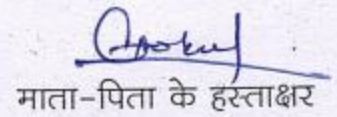 माता-पिता के हस्ताक्षर